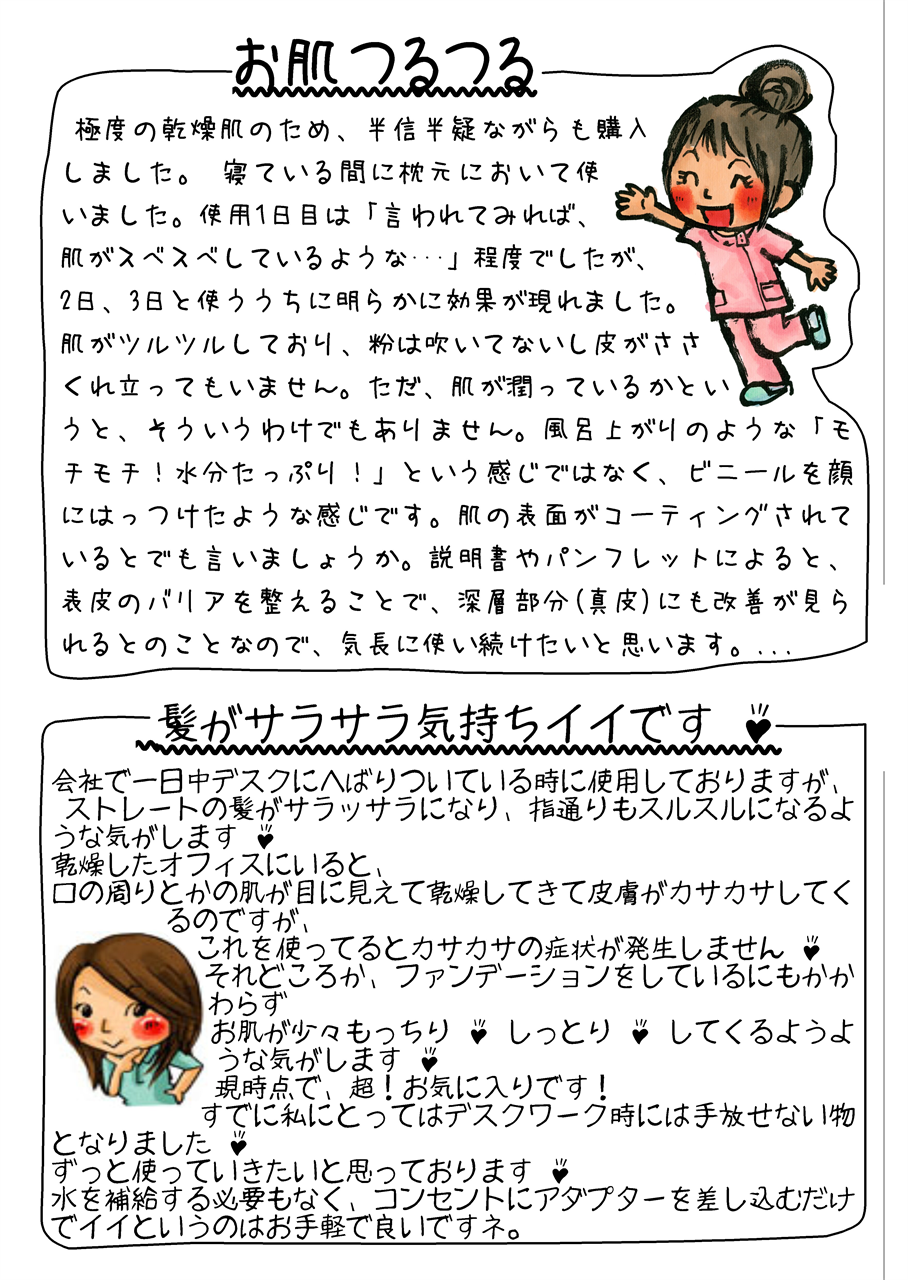 お肌つるつる
極度の乾燥肌のため、半信半疑ながらも購入
しました。 寝ている間に枕元において使
いました。使用1日目は「言われてみれば、
肌がスベスベしているような…」程度でしたが、
2日、3日と使ううちに明らかに効果が現れました。
肌がツルツルしており、粉は吹いてないし皮がささ
くれ立ってもいません。ただ、肌が潤っているかとい
うと、そういうわけでもありません。風呂上がりのような「モ
チモチ！水分たっぷり！」という感じではなく、ビニールを顔
にはっつけたような感じです。肌の表面がコーティングされて
いるとでも言いましょうか。説明書やパンフレットによると、
表皮のバリアを整えることで、深層部分(真皮)にも改善が見ら
れるとのことなので、気長に使い続けたいと思います。...
髪がサラサラ気持ちイイです
会社で一日中デスクにへばりついている時に使用しておりますが、
ストレートの髪がサラッサラになり、指通りもスルスルになるよ
うな気がします
乾燥したオフィスにいると、
口の周りとかの肌が目に見えて乾燥してきて皮膚がカサカサしてく
るのですが、
これを使ってるとカサカサの症状が発生しません
それどころか、ファンデーションをしているにもかか
わらず
お肌が少々もっちり しっとり してくるようよ
うな気がします
現時点で、超！お気に入りです！
すでに私にとってはデスクワーク時には手放せない物
となりました
ずっと使っていきたいと思っております
水を補給する必要もなく、コンセントにアダプターを差し込むだけ
でイイというのはお手軽で良いですネ。